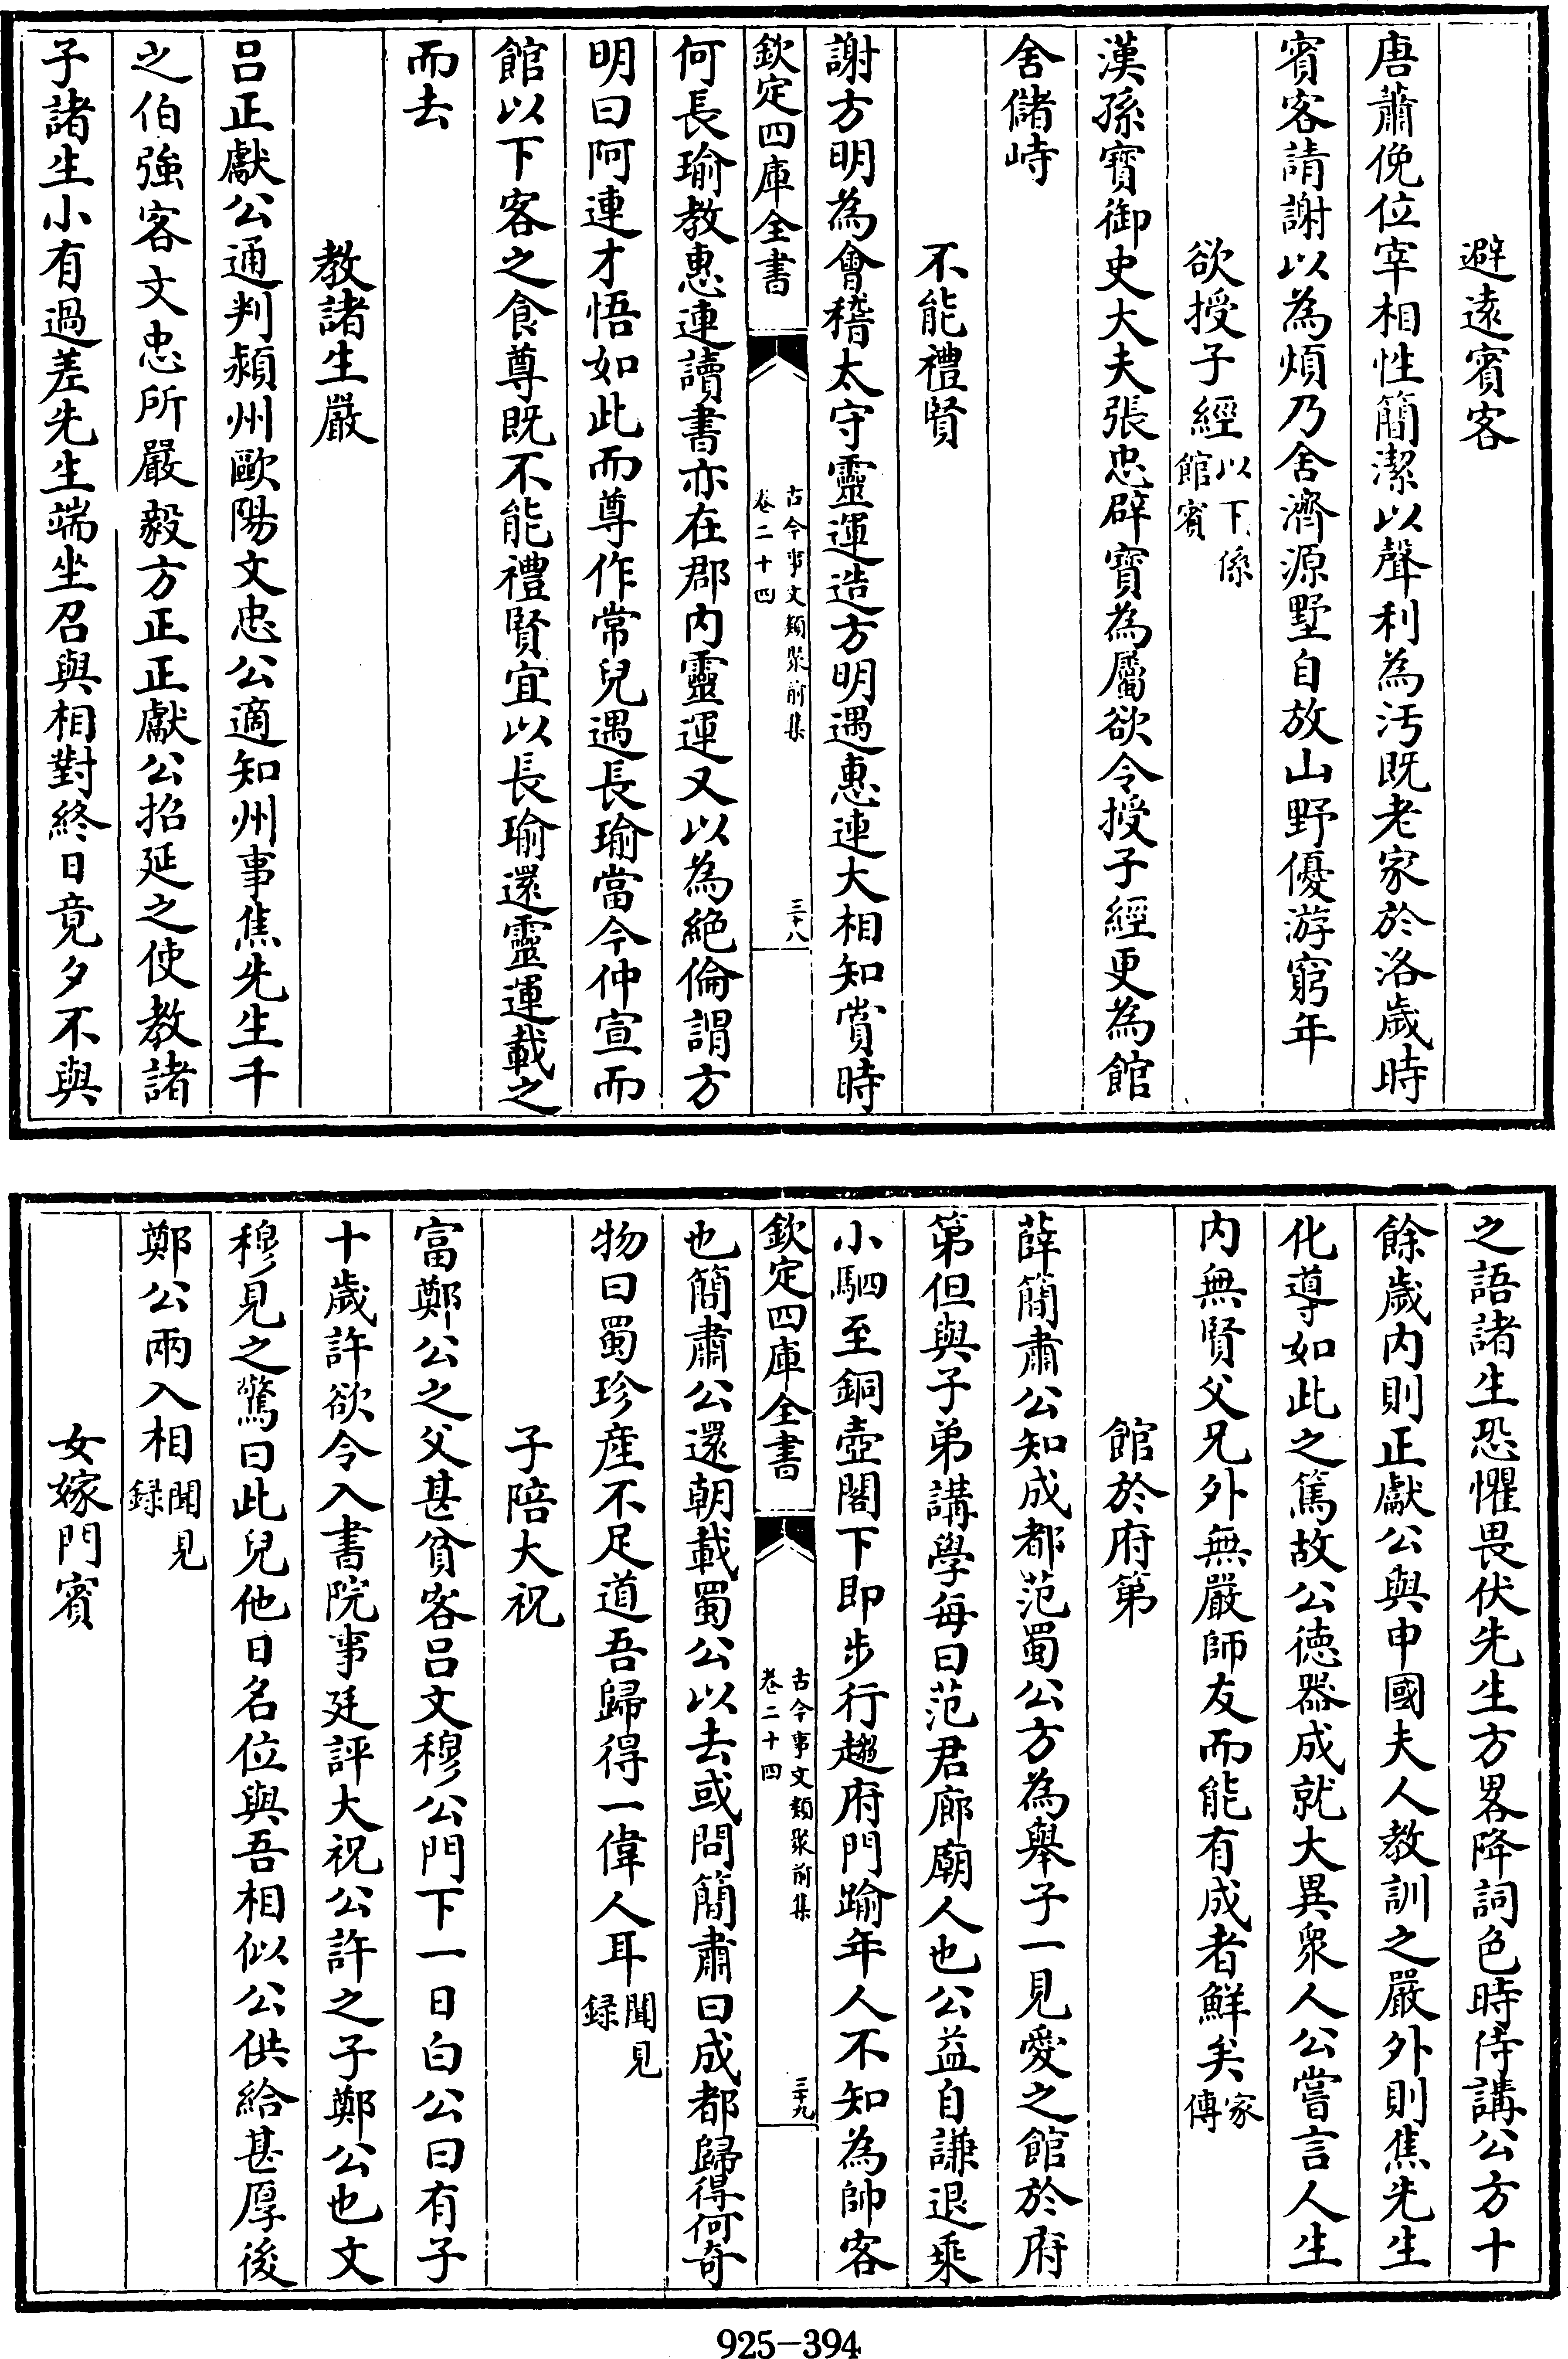 避遠賓客
唐蕭俛位宰相性簡潔以聲利為汚既老家於洛歲時
賓客請謝以為煩乃舍濟源墅自放山野優游窮年
欲授子經以下係館賓
漢孫寶御史大夫張忠辟寶為屬欲令授子經更為館
舍儲峙
不能禮賢
謝方明為會稽太守靈運造方明遇惠連大相知賞時
欽定四庫全書
古今事文類聚前集
卷二十四
三十八
何長瑜教惠連讀書亦在郡内靈運又以為絶倫謂方
明曰阿連才悟如此而尊作常兒遇長瑜當今仲宣而
館以下客之食尊既不能禮賢宜以長瑜還靈運載之
而去
教諸生嚴
呂正獻公通判潁州歐陽文忠公適知州事焦先生千
之伯強客文忠所嚴毅方正正獻公招延之使教諸
子諸生小有過差先生端坐召與相對終日竟夕不與
之語諸生恐懼畏伏先生方畧降詞色時侍講公方十
餘歲内則正獻公與申國夫人教訓之嚴外則焦先生
化導如此之篤故公德器成就大異衆人公嘗言人生
内無賢父兄外無嚴師友而能有成者鮮矣家傳
館於府第
薛簡肅公知成都范蜀公方為舉子一見愛之館於府
第但與子弟講學每曰范君廊廟人也公益自謙退乘
小駟至銅壺閣下即步行趨府門踰年人不知為帥客
欽定四庫全書
古今事文類聚前集
卷二十四
三十九
也簡肅公還朝載蜀公以去或問簡肅曰成都歸得何奇
物曰蜀珍産不足道吾歸得一偉人耳聞見録
子陪大祝
富鄭公之父甚貧客呂文穆公門下一日白公曰有子
十歲許欲令入書院事廷評大祝公許之子鄭公也文
穆見之驚曰此兒他日名位與吾相似公供給甚厚後
鄭公兩入相聞見録
女嫁門賓
925-394